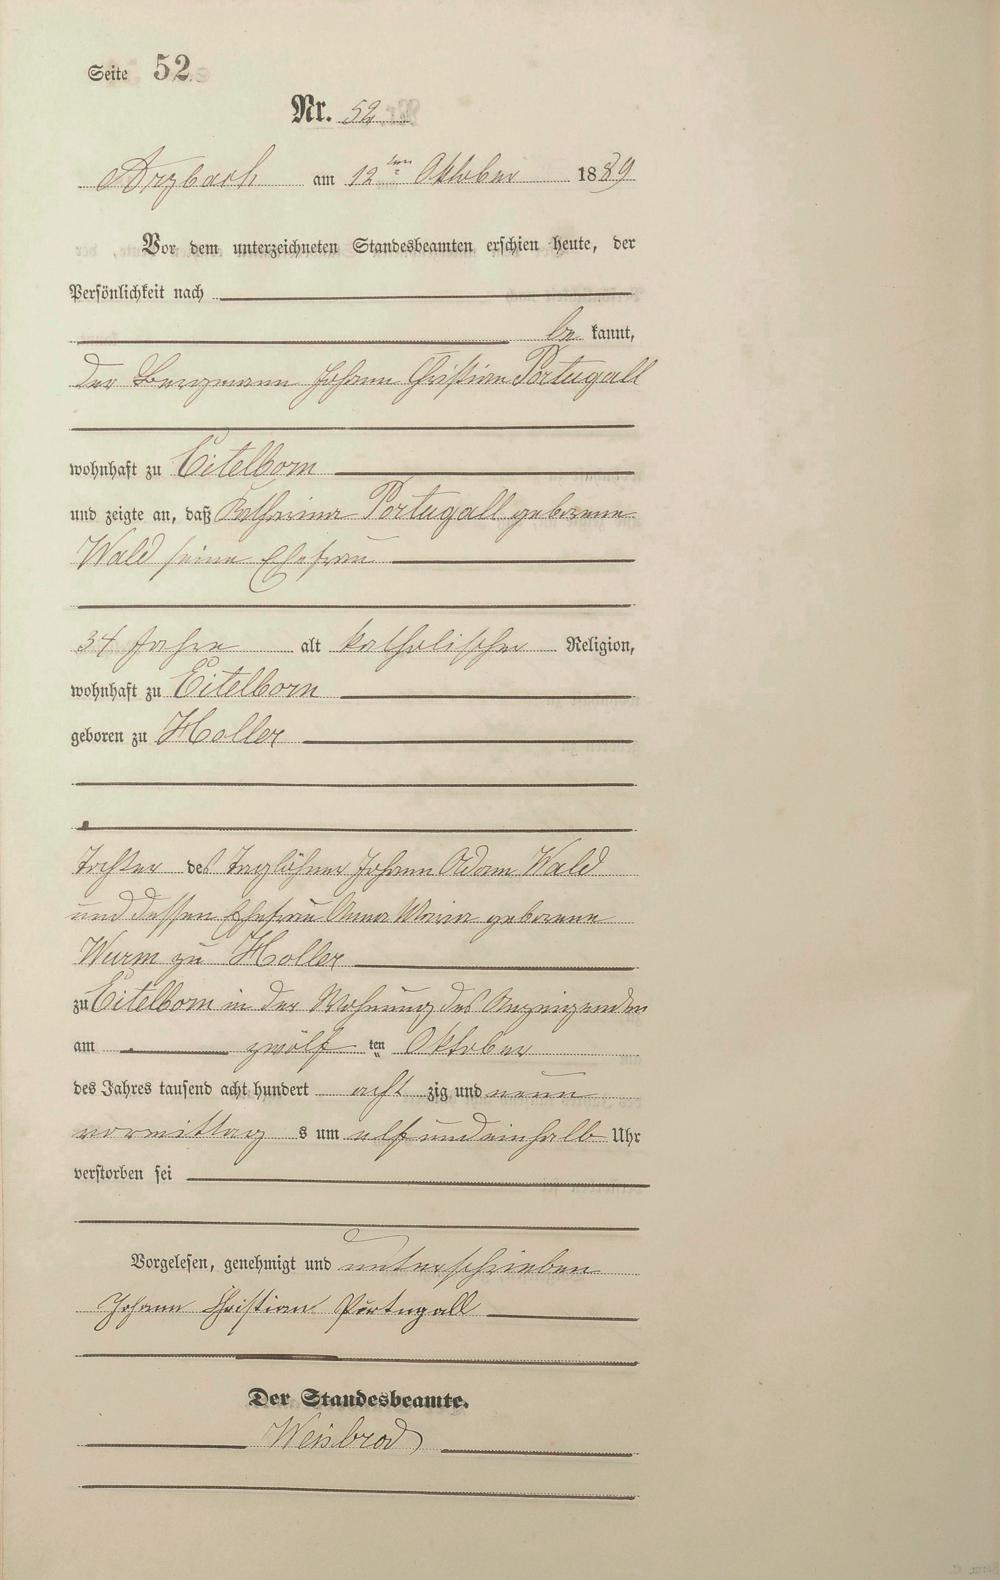 Seite 52.
Nr. 52
Arzbach am 12ten Oktober 1889
Vor dem unterzeichneten Standesbeamten erschien heute, der
Persönlichkeit nach
be kannt,
der Bergmann Johann Christian Portugall
wohnhaft zu Eitelborn
und zeigte an, daß Katharina Portugall geborene
Wald seine Ehefrau
34 Jahre alt katholischer Religion,
wohnhaft zu Eitelborn
geboren zu Holler
Tochter des Taglöhner Johann Adam Wald
und dessen Ehefrau Anna Maria geborene
Wurm zu Holler
zu Eitelborn in der Wohnung des Anzeigenden
am zwölf ten Oktober
des Jahres tausend acht hundert acht zig und neun
vormittag s um elf und einhalb Uhr
verstorben sei
Vorgelesen, genehmigt und unterschrieben
Johann Christian Portugall
Der Standesbeamte.
Weisbrod